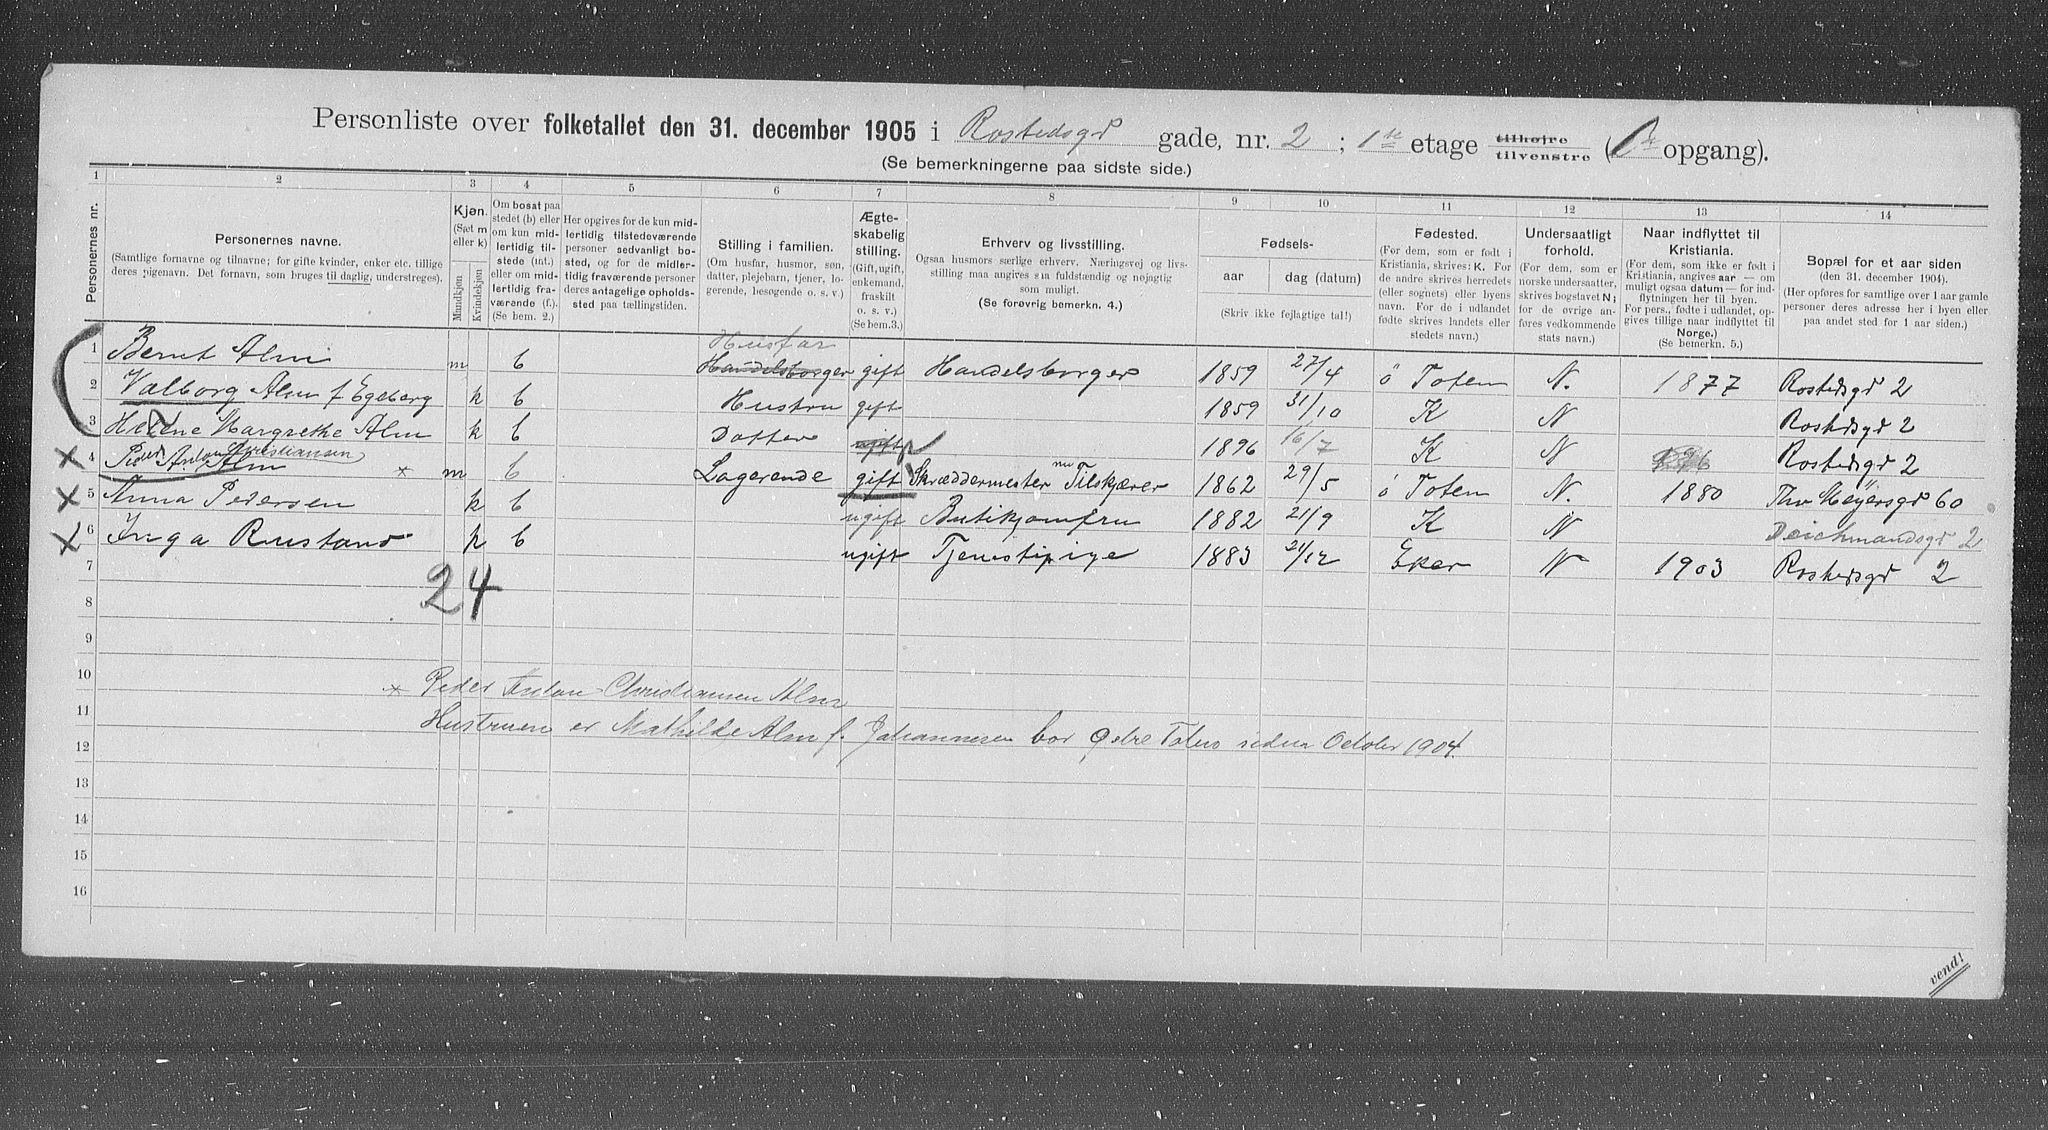 Personliste over folketallet den 31. december 1905 i Rostedsgd gade, nr. 2 ; 1ste etage tilhøjre tilvenstre ( opgang).
(Se bemerkningerne paa sidste side.)
1 2 3 4 5 6 7 8 9 10 11 12 13 14
Personernes nr.
Personernes navne.
(Samtlige fornavne og tilnavne; for gifte kvinder, enker etc. tillige
deres pigenavn. Det fornavn, som bruges til daglig, understreges).
Kjøn.
(Sæt m
eller k)
Mandkjøn
Kvindekjøn
Om bosat paa
stedet (b) eller
om kun mid-
lertidig til-
stede (mt.)
eller om mid-
lertidig fra-
værende (f.).
(Se bem. 2.)
Her opgives for de kun mid-
lertidig tilstedeværende
personer sedvanligt bo-
sted, og for de midler-
tidig fraværende personer
deres antagelige opholds-
sted paa tællingstiden.
Stilling i familien.
(Om husfar, husmor, søn,
datter, plejebarn, tjener, lo-
gerende, besøgende o. s. v.)
Ægte-
skabelig
stilling.
(Gift, ugift,
enkemand,
fraskilt
o. s. v.)
(Se bem.3.)
Erhverv og livsstilling.
Ogsaa husmors særlige erhverv. Næringsvej og livs-
stilling maa angives saa fuldstændig og nøjagtig
som muligt.
(Se forøvrig bemerkn. 4.)
Fødsels-
aar dag (datum)
(Skriv ikke fejlagtige tal!)
Fødested.
(For dem, som er født i
Kristiania, skrives: K. For
de andre skrives herredets
(eller sognets) eller byens
navn. For de i udlandet
fødte skrives landets eller
stedets navn.)
Undersaatligt
forhold.
(For dem, som er
norske undersaatter,
skrives bogstavet N;
for de øvrige an-
føres vedkommende
stats navn.)
Naar indflyttet til
Kristiania.
(For dem, som ikke er født i
Kristiania, angives aar — om
muligt ogsaa datum — for ind-
flytningen her til byen.
For pers., fødte i udlandet, op-
gives tillige naar indflyttet til
Norge.)
(Se bemerkn. 5.)
Bopæl for et aar siden
(den 31. december 1904).
(Her opføres for samtlige over 1 aar gamle
personer deres adresse her i byen eller
paa andet sted for 1 aar siden.)
Husfar
1 Bernt Alm m b Handelsborger gift Handelsborger 1859 27/4 ö Toten N. 1877 Rostedsgd 2
2 Valborg Alm f Egeberg k b Hustru gift 1859 31/10 K N Rostedsgd 2
3 Helene Margrethe Alm k b Datter ugift 1896 16/7 K N Rostedsgd 2
Christiansen
4 Peder Anton Alm × m b Logerende gift Skræddermester nu Tilskjærer 1862 29/5 ö Toten N. 1880 Thv Meyersgd 60
5 Anna Pedersen k b ugift Butikjomfru 1882 21/9 K N Deichmandsgd 2
6 Inga Rustand k b ugift Tjenestepige 1883 21/12 Eker N 1903 Rostedsgd 2
7
24
8
9
10
× Peder Anton Christiansen Alm
11
Hustruen er Mathilde Alm f. Johannesen bor Östre Toten siden October 1904.
12
13
14
15
16
vend!